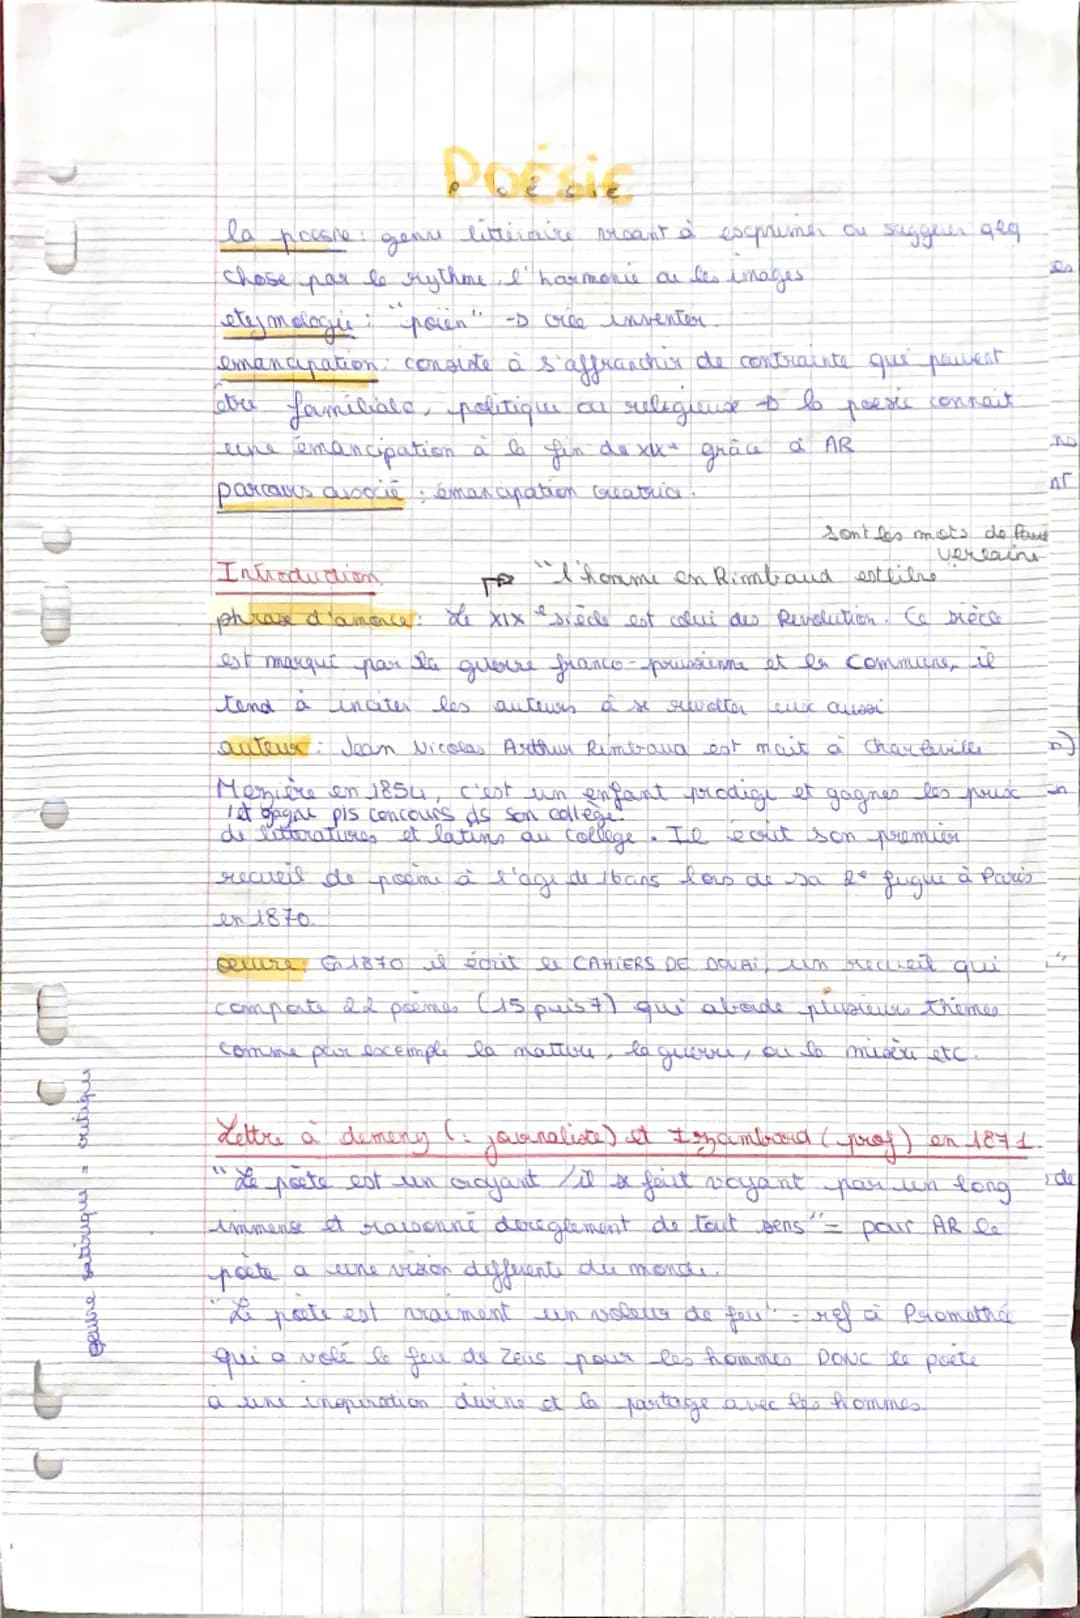 POÉSIE
la poesie : genre littéraire visant à exprimer ou suggerer qlq
chose par le rythme, l'harmonie ou les images
etymologie : "poiein" -> crée inventer.
emancipation : consiste à s'affranchir de contrainte qui peuvent
être familiale, politique ou religieuse -> la poesie connait
une émancipation à la fin du XIXe grâce à AR
parcours associé : émancipation creatrice.
sont les mots de Paul
verlaine
Introduction -> "l'homme en Rimbaud est libre"
phrase d'amorce : Le XIXe siècle est celui des Revolution. Ce siècle
est marqué par la guerre franco-prussienne et la Commune, il
tend à inciter les auteurs à se revolter eux aussi
auteur : Jean Nicolas Arthur Rimbaud est nait à Charleville
Mezière en 1854, c'est un enfant prodige et gagnes les prix
et gagne pls concours ds son collège.
de litteratures et latins au collège. Il écrit son premier
recueil de poème à l'age de 16ans lors de sa 2e fugue à Paris
en 1870.
oeuvre : En 1870 il écrit le CAHIERS DE DOUAI, un recueil qui
comporte 22 poèmes (15 puis 7) qui aborde plusieurs thèmes
comme par exemple la nature, la guerre, ou la misère etc.
Lettre à demeny (: journaliste) et Izambard (prof) en 1871.
"Le poète est un croyant / il se fait voyant par un long
immense et raisonné dereglement de tout sens" = pour AR le
poète a une vision differente du monde.
"Le poète est vraiment un voleur de feu" = ref à Promethé
qui a volé le feu de Zeus pour les hommes DONC le poète
a une inspiration divine et la partage avec les hommes.
genre satirique = critique